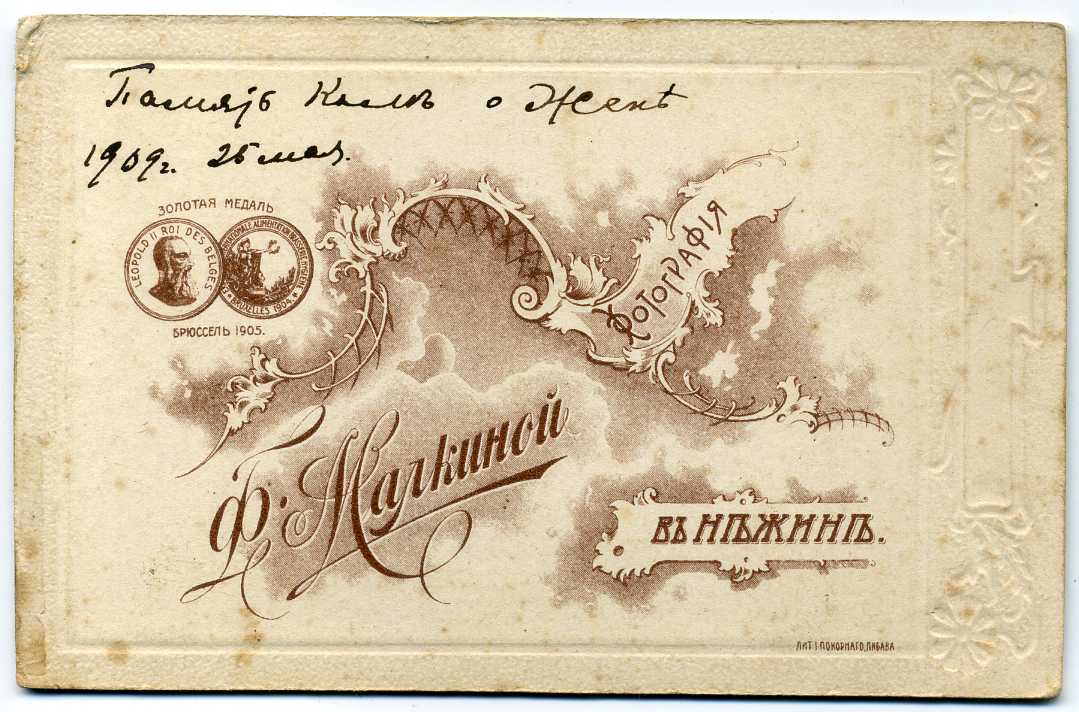 Память Косте о Женѣ
1909г. 25 мая.
ЗОЛОТАЯ МЕДАЛЬ
LEOPOLD II ROI DES BELGES
BRUXELLES 1904
БРЮССЕЛЬ 1905.
ФОТОГРАФІЯ
Ф. Малкиной
ВЪ НѢЖИНѢ.
ЛИТ. І. ПОКОРНАГО, ЛИБАВА